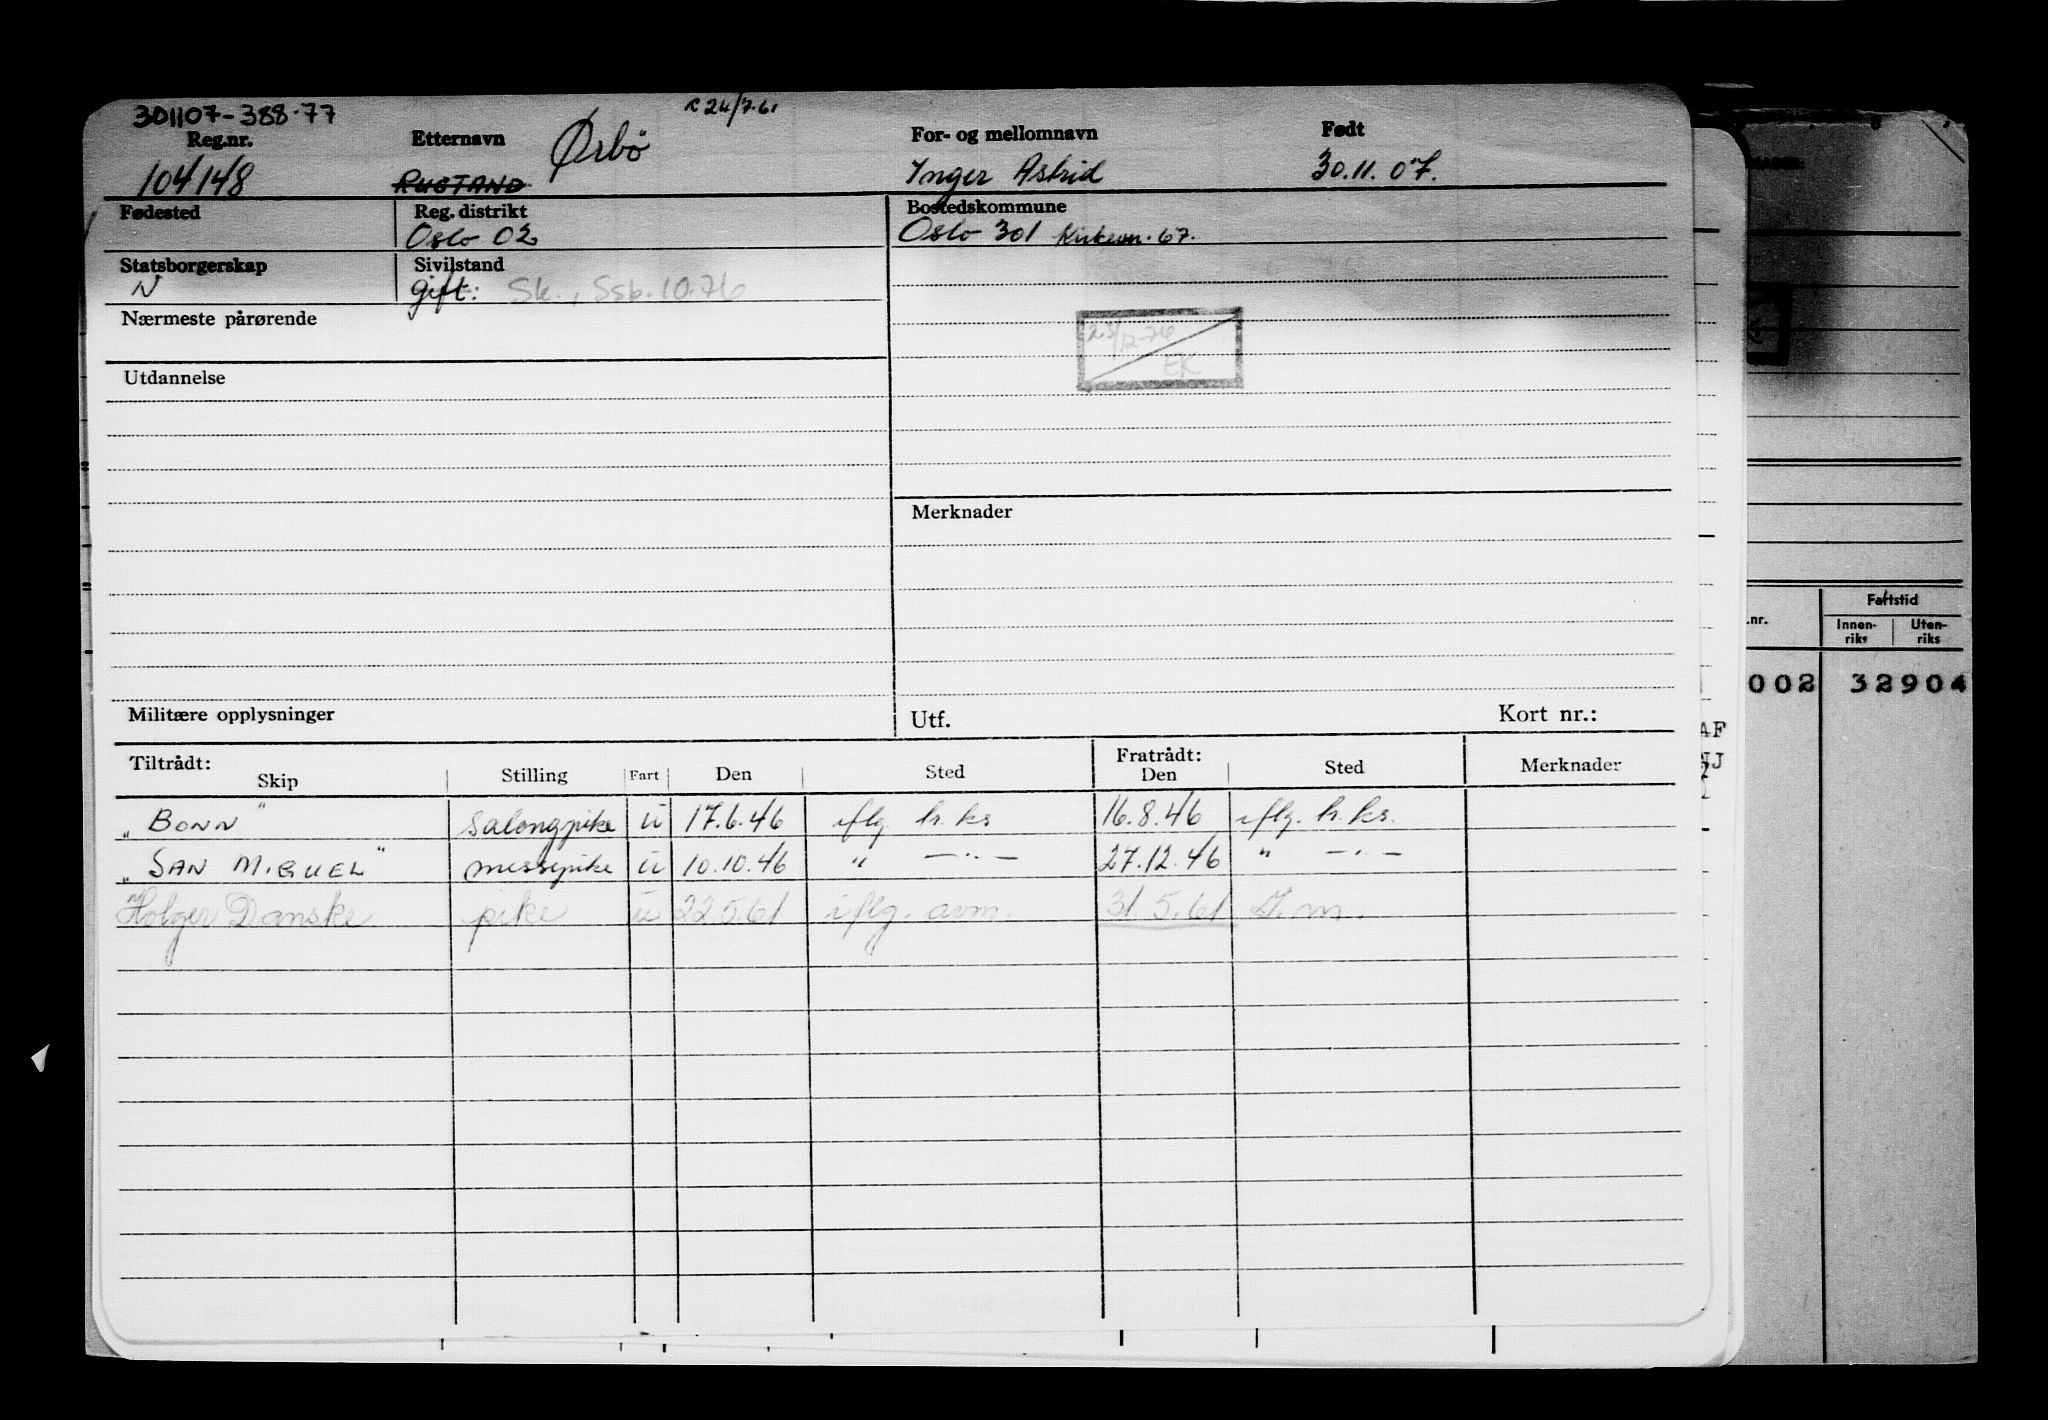 301107-388.77
24/7.61
Reg.nr. Etternavn Ørbö For- og mellomnavn Født
104148 RUSTAND Inger Astrid 30.11.07.
Fødested Reg. distrikt Bostedskommune
Oslo 02 Oslo 301 Kirkevn. 67.
Statsborgerskap Sivilstand
N gift: Sk., Ssb. 10.76
Nærmeste pårørende
23/12-76
EK
Utdannelse
Merknader
Militære opplysninger Utf. Kort nr.:
Tiltrådt: Fratrådt:
Skip Stilling Fart Den Sted Den Sted Merknader
"BONN" salongpike u 17.6.46 iflg. h.ks 16.8.46 iflg. h.ks.
"SAN MIGUEL" messepike u 10.10.46 " —"— 27.12.46 " —"—
"Holger Danske pike u 22.5.61 iflg. avm. 31.5.61 S.m.
Fartstid
.nr. Innen-riks Uten-riks
002 32904
AF
NJ